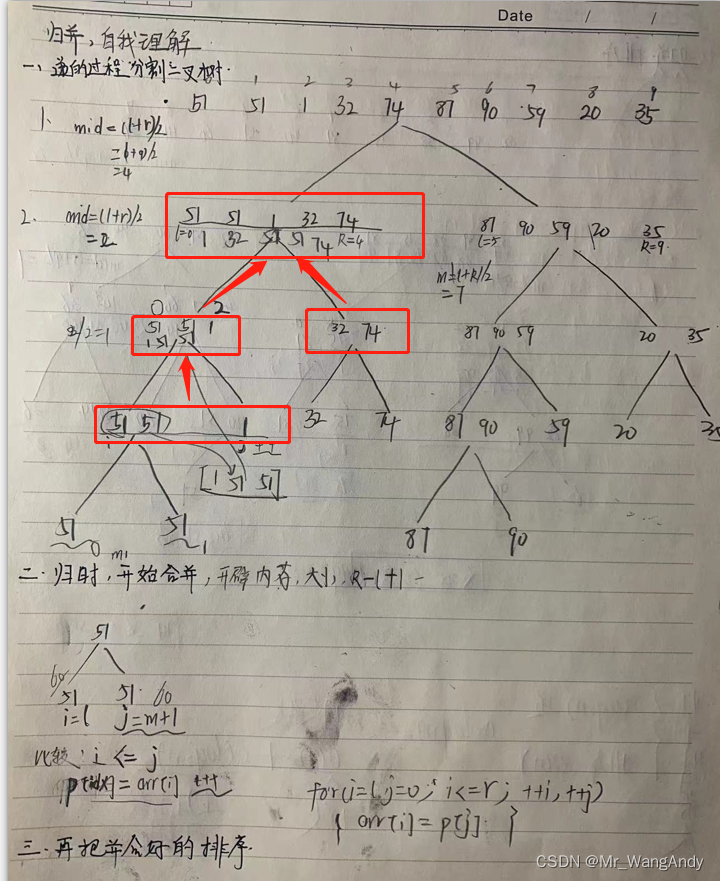 Date / /
归并,自我理解
一、递的过程分割二叉树.
1 2 3 4 5 6 7 8 9
51 51 1 32 74 87 90 59 20 35
1. mid=(l+r)/2
=4
2. mid=(l+r)/2
51 51 1 32 74
l=0 1 32 51 51 74 R=4
87 90 59 20 35
l=5 R=9
=7
0 2
2/2=1
51 51 1
1 51 51
32 74
87 90 59
20 35
51 51 1
32 74
87 90 59
20 35
[1 51 51]
51 0
51 1
87 90
二.归时,开始合并,开辟内存,大小,R-l+1
51
51 51
i=l j=m+1
比较: i <= j
p[idx]=arr[i] ++
for(i=l,j=0; i<=r; ++i,++j)
{ arr[i]=p[j]. }
三.再把并合好的排序.
CSDN @Mr_WangAndy